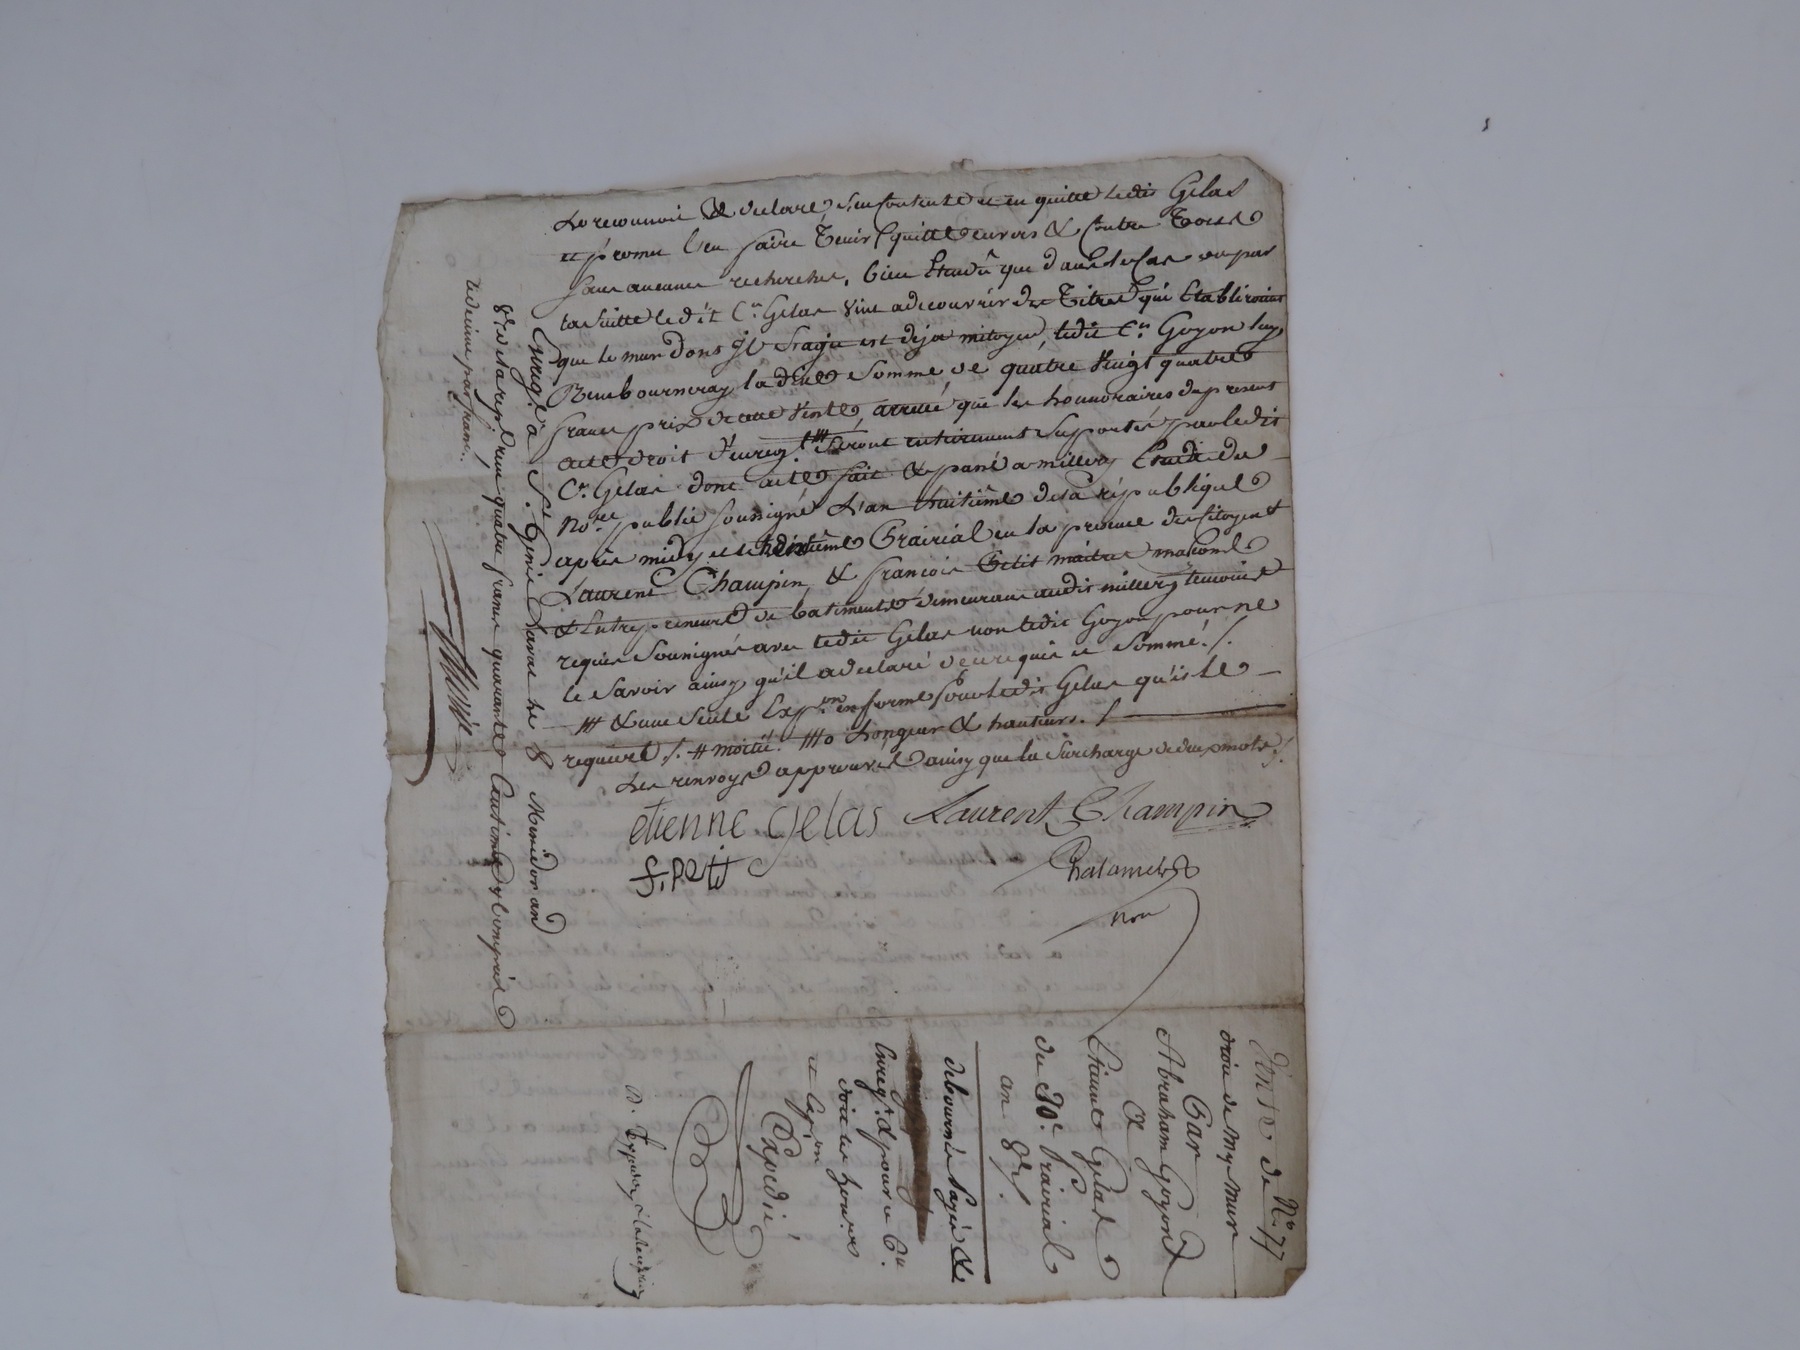 Le reconnoit & declare, s'en contente et en quitte ledit Gelas
et promet l'en faire tenir quitte envers & contre tous
sans aucunes recherches, bien Etendû que dans le cas ou par
la suitte ledit Cn. Gelas vint a decouvrir des Titres qui Etabliroient
que le mur dont Il s'agit est déja mitoyen, ledit Cn. Goyon luy
Rembourneray ladite somme de quatre vingt quatre
francs prix de cette vente, arreté que les honnoraires du present
acte droit d'enregt. ### seront entierement suportés par ledit
Cn. Gelas. dont acte fait & passé a millery Etude du
Nore. public soussigné L'an huitième de la république
après midy et le trentième Prairial en la presence des Citoyens
Laurent Champin, & francois Petit maitres massons
& Entrepreneurs de batiments demeurant audit millery temoins
requis soussignés avec ledit Gelas non ledit Goyon pour ne
le savoir ainsy qu'il a declaré de ce requis et sommé ./.
### & une seule Expon. en forme pour ledit Gelas qui le
requiert ./. # moitié. ###o Longeur & hauteurs. /
Les renvoys approuvés ainsy que la surcharge de deux mots ./.
etienne gelas Laurent Champin
f. petit
Chalamel
nre
Enregt. a St. Genis Laval le 8 Messidor an
8e. de la repe. reçu quatre francs quarante Centimes y compris
le decime par franc.
No. 77
Vente de
droit de my mur
Par
Abraham Goyon
a
Etienne Gelas
du 30e. Prairial
an 8e.
debournés Payés &
Enregt. pour ce Cn.
doit les honres
et Expon
Expedié